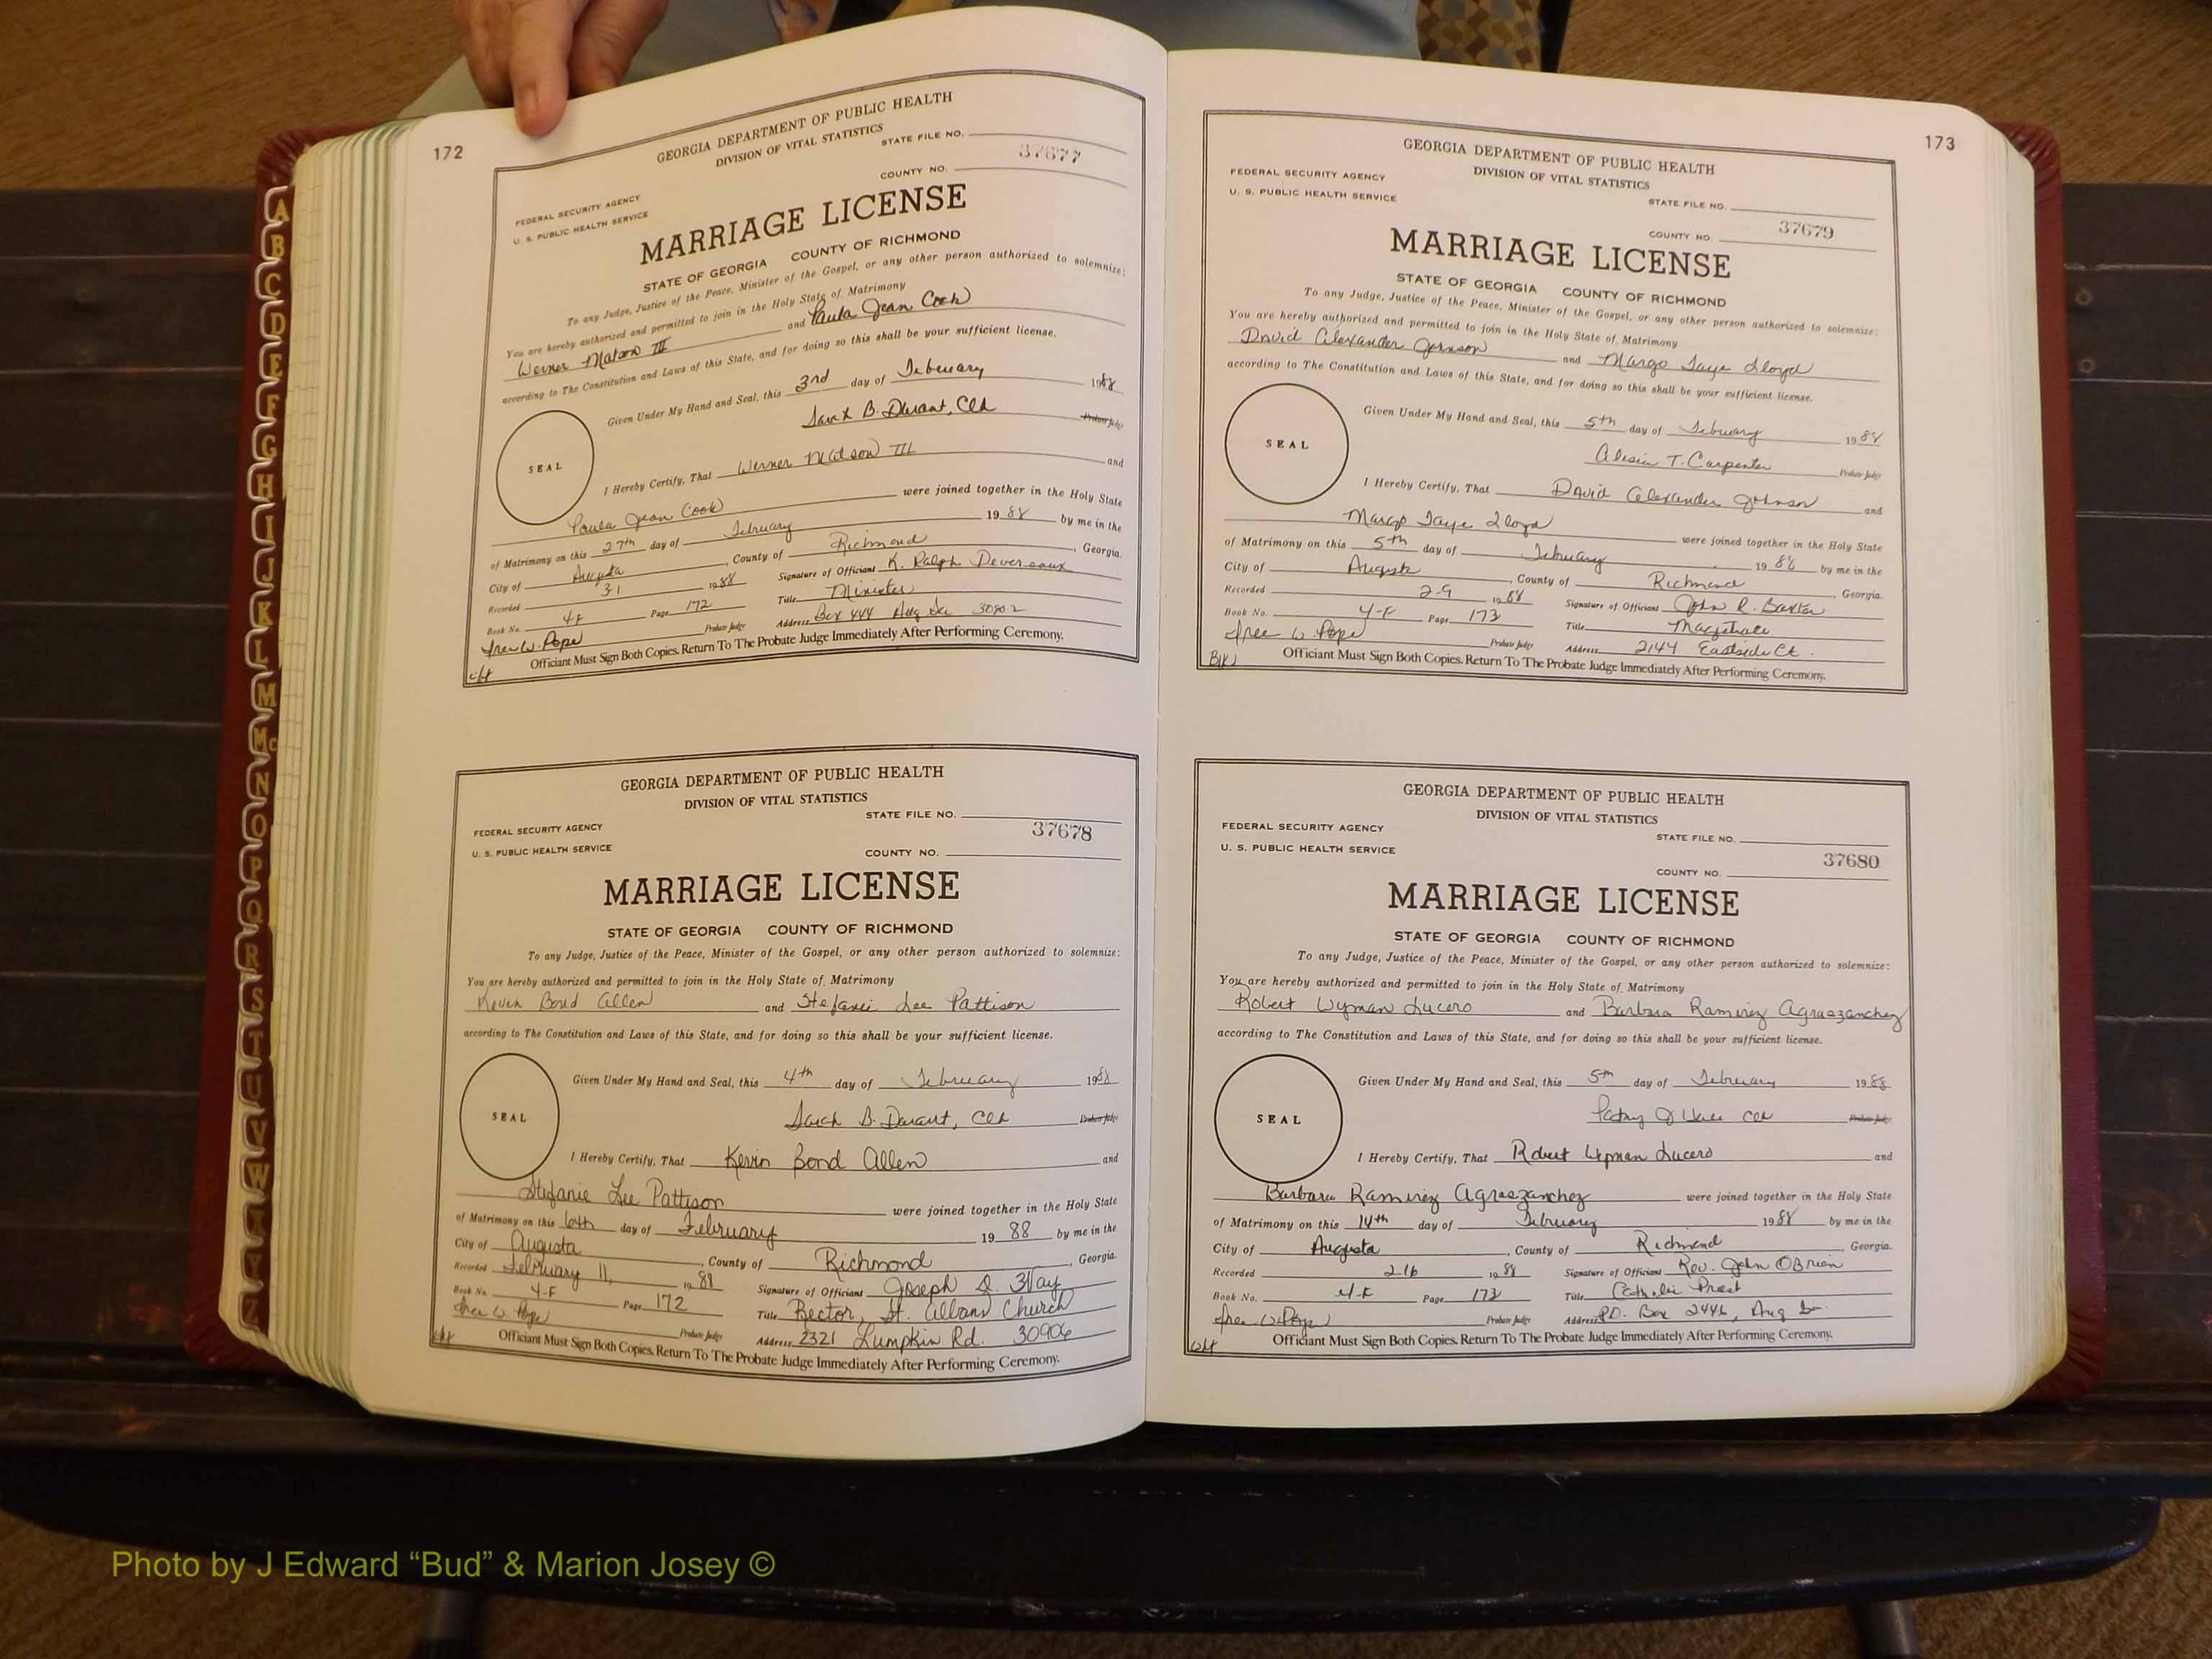 172
GEORGIA DEPARTMENT OF PUBLIC HEALTH
DIVISION OF VITAL STATISTICS
STATE FILE NO.
37677
FEDERAL SECURITY AGENCY
COUNTY NO.
U. S. PUBLIC HEALTH SERVICE
MARRIAGE LICENSE
STATE OF GEORGIA COUNTY OF RICHMOND
To any Judge, Justice of the Peace, Minister of the Gospel, or any other person authorized to solemnize:
You are hereby authorized and permitted to join in the Holy State of Matrimony
Werner III and Paula Jean Cook
according to The Constitution and Laws of this State, and for doing so this shall be your sufficient license.
Given Under My Hand and Seal, this 3rd day of February 1988
B. Durant, Clk Probate Judge
SEAL
I Hereby Certify, That Werner III and
Paula Jean Cook were joined together in the Holy State
of Matrimony on this 27th day of February 1988 by me in the
City of Augusta, County of Richmond, Georgia.
Recorded 3-1 1988 Signature of Officiant K. Ralph Devereaux
Book No. 4-F Page 172 Title Minister
Probate Judge Address Box 444 Aug Ga 30902
Officiant Must Sign Both Copies. Return To The Probate Judge Immediately After Performing Ceremony.
GEORGIA DEPARTMENT OF PUBLIC HEALTH
DIVISION OF VITAL STATISTICS
STATE FILE NO.
37678
FEDERAL SECURITY AGENCY
U. S. PUBLIC HEALTH SERVICE
COUNTY NO.
MARRIAGE LICENSE
STATE OF GEORGIA COUNTY OF RICHMOND
To any Judge, Justice of the Peace, Minister of the Gospel, or any other person authorized to solemnize:
You are hereby authorized and permitted to join in the Holy State of Matrimony
Kevin Bond Allen and Stefanie Lee Pattison
according to The Constitution and Laws of this State, and for doing so this shall be your sufficient license.
Given Under My Hand and Seal, this 4th day of February 1988
B. Durant, Clk Probate Judge
SEAL
I Hereby Certify, That Kevin Bond Allen and
Stefanie Lee Pattison were joined together in the Holy State
of Matrimony on this 6th day of February 19 88 by me in the
City of Augusta, County of Richmond, Georgia.
Recorded February 11, 1988 Signature of Officiant Joseph
Book No. 4-F Page 172 Title Rector, St. Albans Church
Probate Judge Address 2321 Lumpkin Rd. 30906
Officiant Must Sign Both Copies. Return To The Probate Judge Immediately After Performing Ceremony.
173
GEORGIA DEPARTMENT OF PUBLIC HEALTH
DIVISION OF VITAL STATISTICS
FEDERAL SECURITY AGENCY
U. S. PUBLIC HEALTH SERVICE
STATE FILE NO.
37679
COUNTY NO.
MARRIAGE LICENSE
STATE OF GEORGIA COUNTY OF RICHMOND
To any Judge, Justice of the Peace, Minister of the Gospel, or any other person authorized to solemnize:
You are hereby authorized and permitted to join in the Holy State of Matrimony
David Alexander Johnson and Margo Faye Lloyd
according to The Constitution and Laws of this State, and for doing so this shall be your sufficient license.
Given Under My Hand and Seal, this 5th day of February 1988
T. Carpenter Probate Judge
SEAL
I Hereby Certify, That David Alexander Johnson and
Margo Faye Lloyd were joined together in the Holy State
of Matrimony on this 5th day of February 1988 by me in the
City of Augusta, County of Richmond, Georgia.
Recorded 2-9 1988 Signature of Officiant John R. Baxter
Book No. 4-F Page 173 Title Magistrate
Probate Judge Address 2144 Eastside Ct.
Officiant Must Sign Both Copies. Return To The Probate Judge Immediately After Performing Ceremony.
GEORGIA DEPARTMENT OF PUBLIC HEALTH
DIVISION OF VITAL STATISTICS
FEDERAL SECURITY AGENCY
STATE FILE NO.
U. S. PUBLIC HEALTH SERVICE
37680
COUNTY NO.
MARRIAGE LICENSE
STATE OF GEORGIA COUNTY OF RICHMOND
To any Judge, Justice of the Peace, Minister of the Gospel, or any other person authorized to solemnize:
You are hereby authorized and permitted to join in the Holy State of Matrimony
Robert Wyman Lucero and Barbara Ramirez Agraszanchez
according to The Constitution and Laws of this State, and for doing so this shall be your sufficient license.
Given Under My Hand and Seal, this 5th day of February 1988
Clk Probate Judge
SEAL
I Hereby Certify, That Robert Wyman Lucero and
Barbara Ramirez Agraszanchez were joined together in the Holy State
of Matrimony on this 14th day of February 1988 by me in the
City of Augusta, County of Richmond, Georgia.
Recorded 2-16 1988 Signature of Officiant Rev. John OBrien
Book No. 4-F Page 173 Title Catholic Priest
Probate Judge Address P.O. Box 2446, Aug Ga.
Officiant Must Sign Both Copies. Return To The Probate Judge Immediately After Performing Ceremony.
A
B
C
D
E
F
G
H
I
J
K
L
M
Mc
N
O
P
Q
R
S
T
U
V
W
X
Y
Z
Photo by J Edward “Bud” & Marion Josey ©